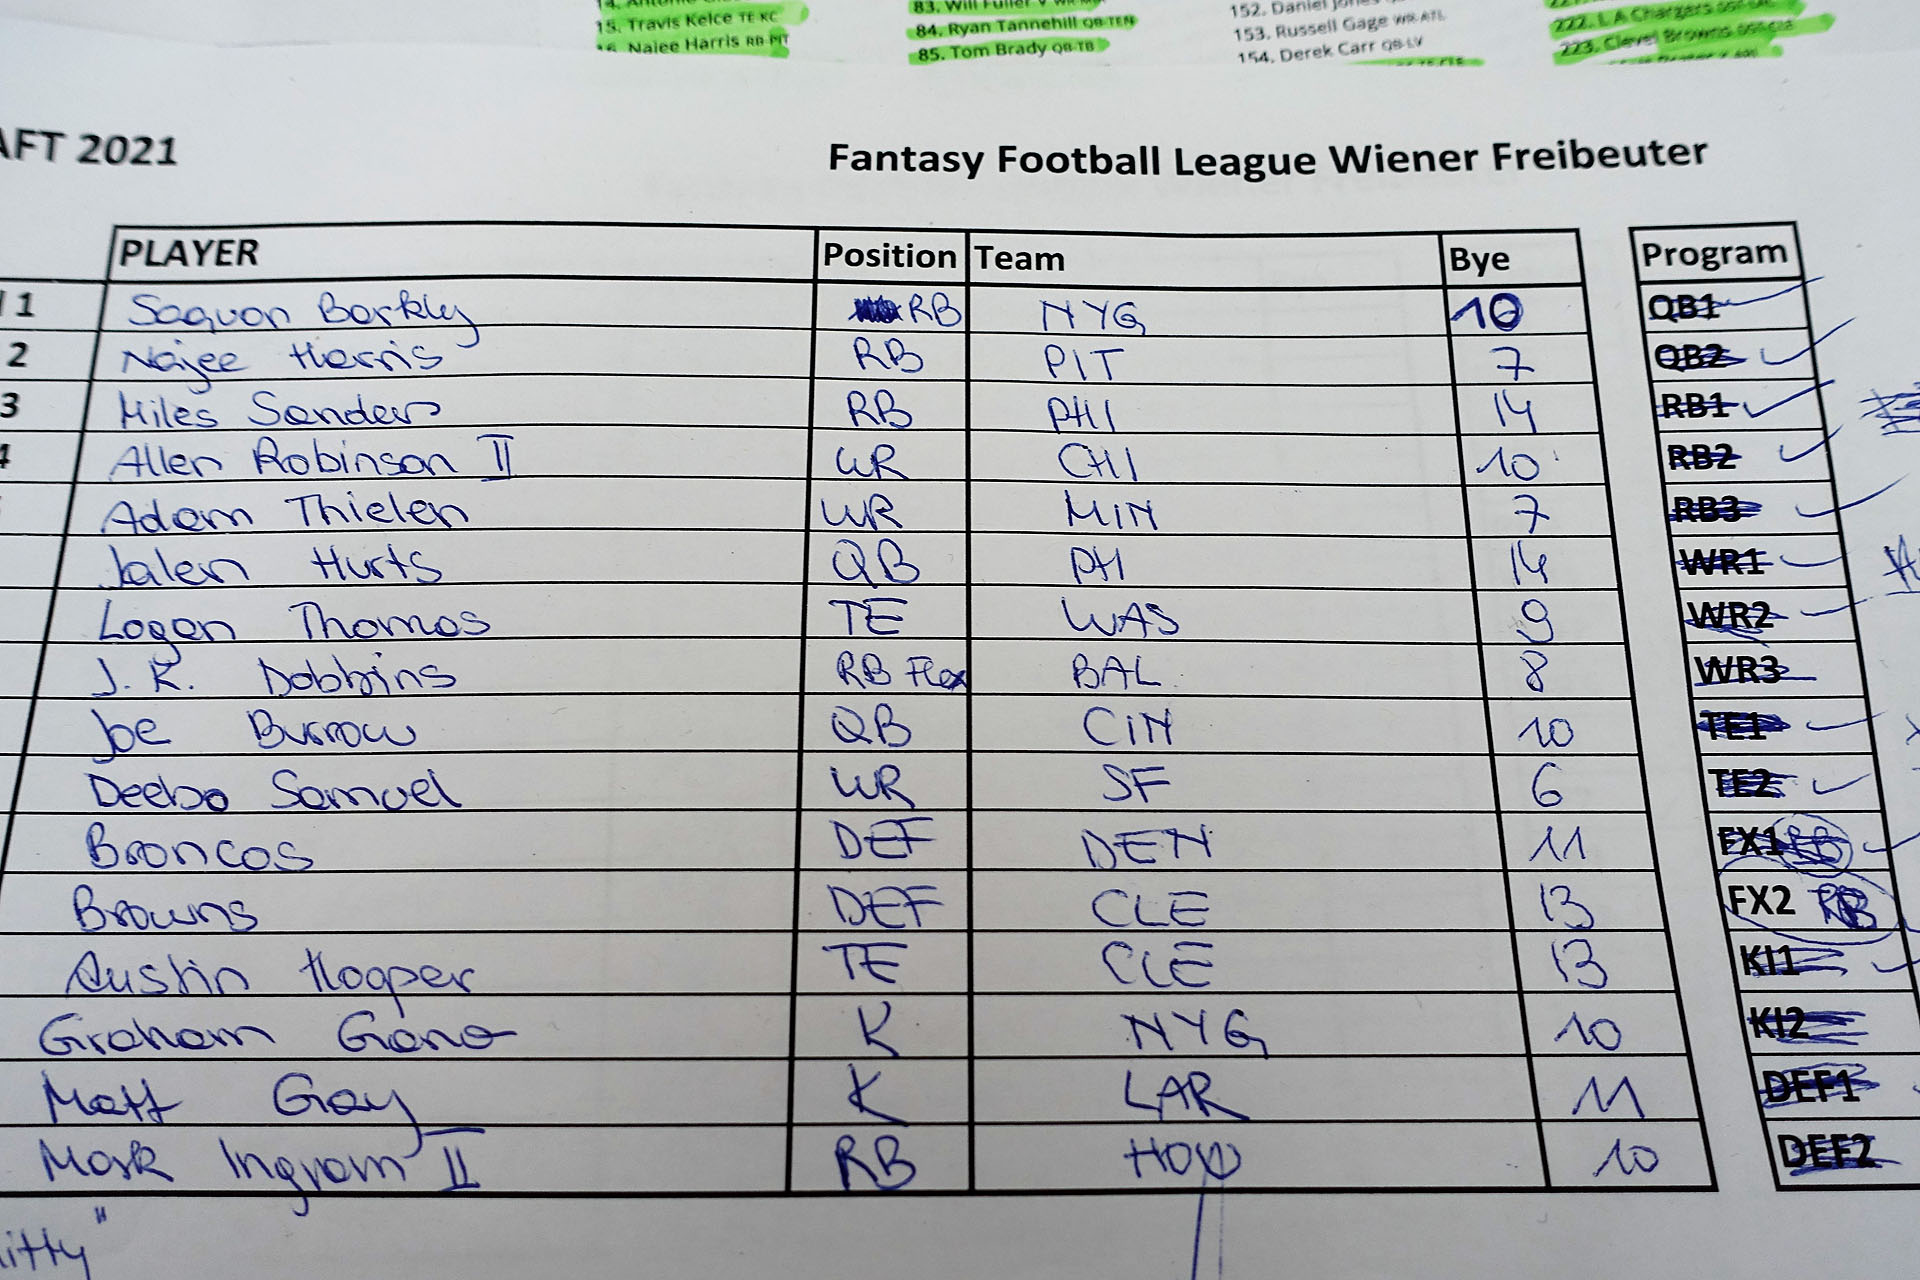 15. Travis Kelce TE KC
Najee Harris RB-PIT
83. Will Fuller V WR
84. Ryan Tannehill QB-TEN
85. Tom Brady QB-TB
152. Daniel Jones
153. Russell Gage WR-ATL
154. Derek Carr QB-LV
222. L A Chargers
223. Clevel Browns
AFT 2021
Fantasy Football League Wiener Freibeuter
PLAYER Position Team Bye Program
1 Saquon Barkly RB NYG 10 QB1
2 Najee Harris RB PIT 7 QB2
3 Miles Sanders RB PHI 14 RB1
4 Allen Robinson II WR CHI 10 RB2
Adam Thielen WR MIN 7 RB3
Jalen Hurts QB PHI 14 WR1
Logan Thomas TE WAS 9 WR2
J. K. Dobbins RB Flex BAL 8 WR3
Joe Burrow QB CIN 10 TE1
Deebo Samuel WR SF 6 TE2
Broncos DEF DEN 11 FX1 RB
Browns DEF CLE 13 FX2 RB
Austin Hooper TE CLE 13 KI1
Graham Gano K NYG 10 KI2
Matt Gay K LAR 11 DEF1
Mark Ingram II RB HOU 10 DEF2
itty"